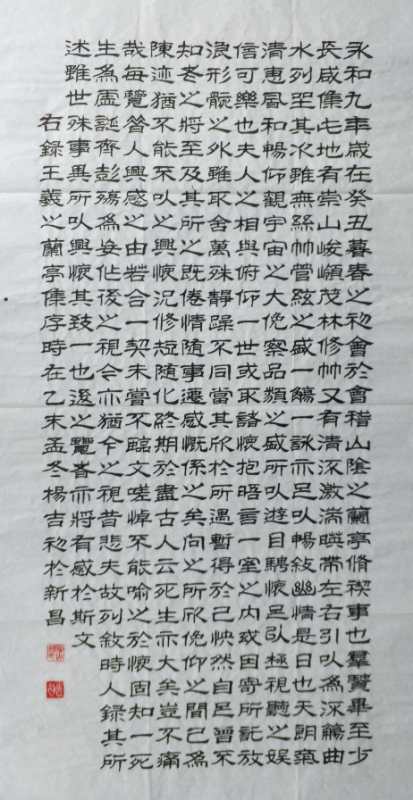 永和九年歲在癸丑暮春之初會於會稽山陰之蘭亭脩禊事也羣賢畢至少
長咸集此地有崇山峻嶺茂林修竹又有清流激湍暎帶左右引以為流觴曲
水列坐其次雖無絲竹管絃之盛一觴一詠亦足以暢敘幽情是日也天朗氣
清惠風和暢仰觀宇宙之大俛察品類之盛所以遊目騁懷足以極視聽之娛
信可樂也夫人之相與俯仰一世或取諸懷抱晤言一室之内或因寄所託放
浪形骸之外雖取舍萬殊靜躁不同當其欣於所遇暫得於己怏然自足曾不
知老之將至及其所之既倦情隨事遷感慨係之矣向之所欣俛仰之間已為
陳迹猶不能不以之興懷況修短隨化終期於盡古人云死生亦大矣豈不痛
哉每覽昔人興感之由若合一契未嘗不臨文嗟悼不能喻之於懷固知一死
生為虛誕齊彭殤為妄作後之視今亦猶今之視昔悲夫故列敘時人錄其所
述雖世殊事異所以興懷其致一也後之覽者亦將有感於斯文
右錄王羲之蘭亭集序時在乙未孟冬楊吉初於新昌